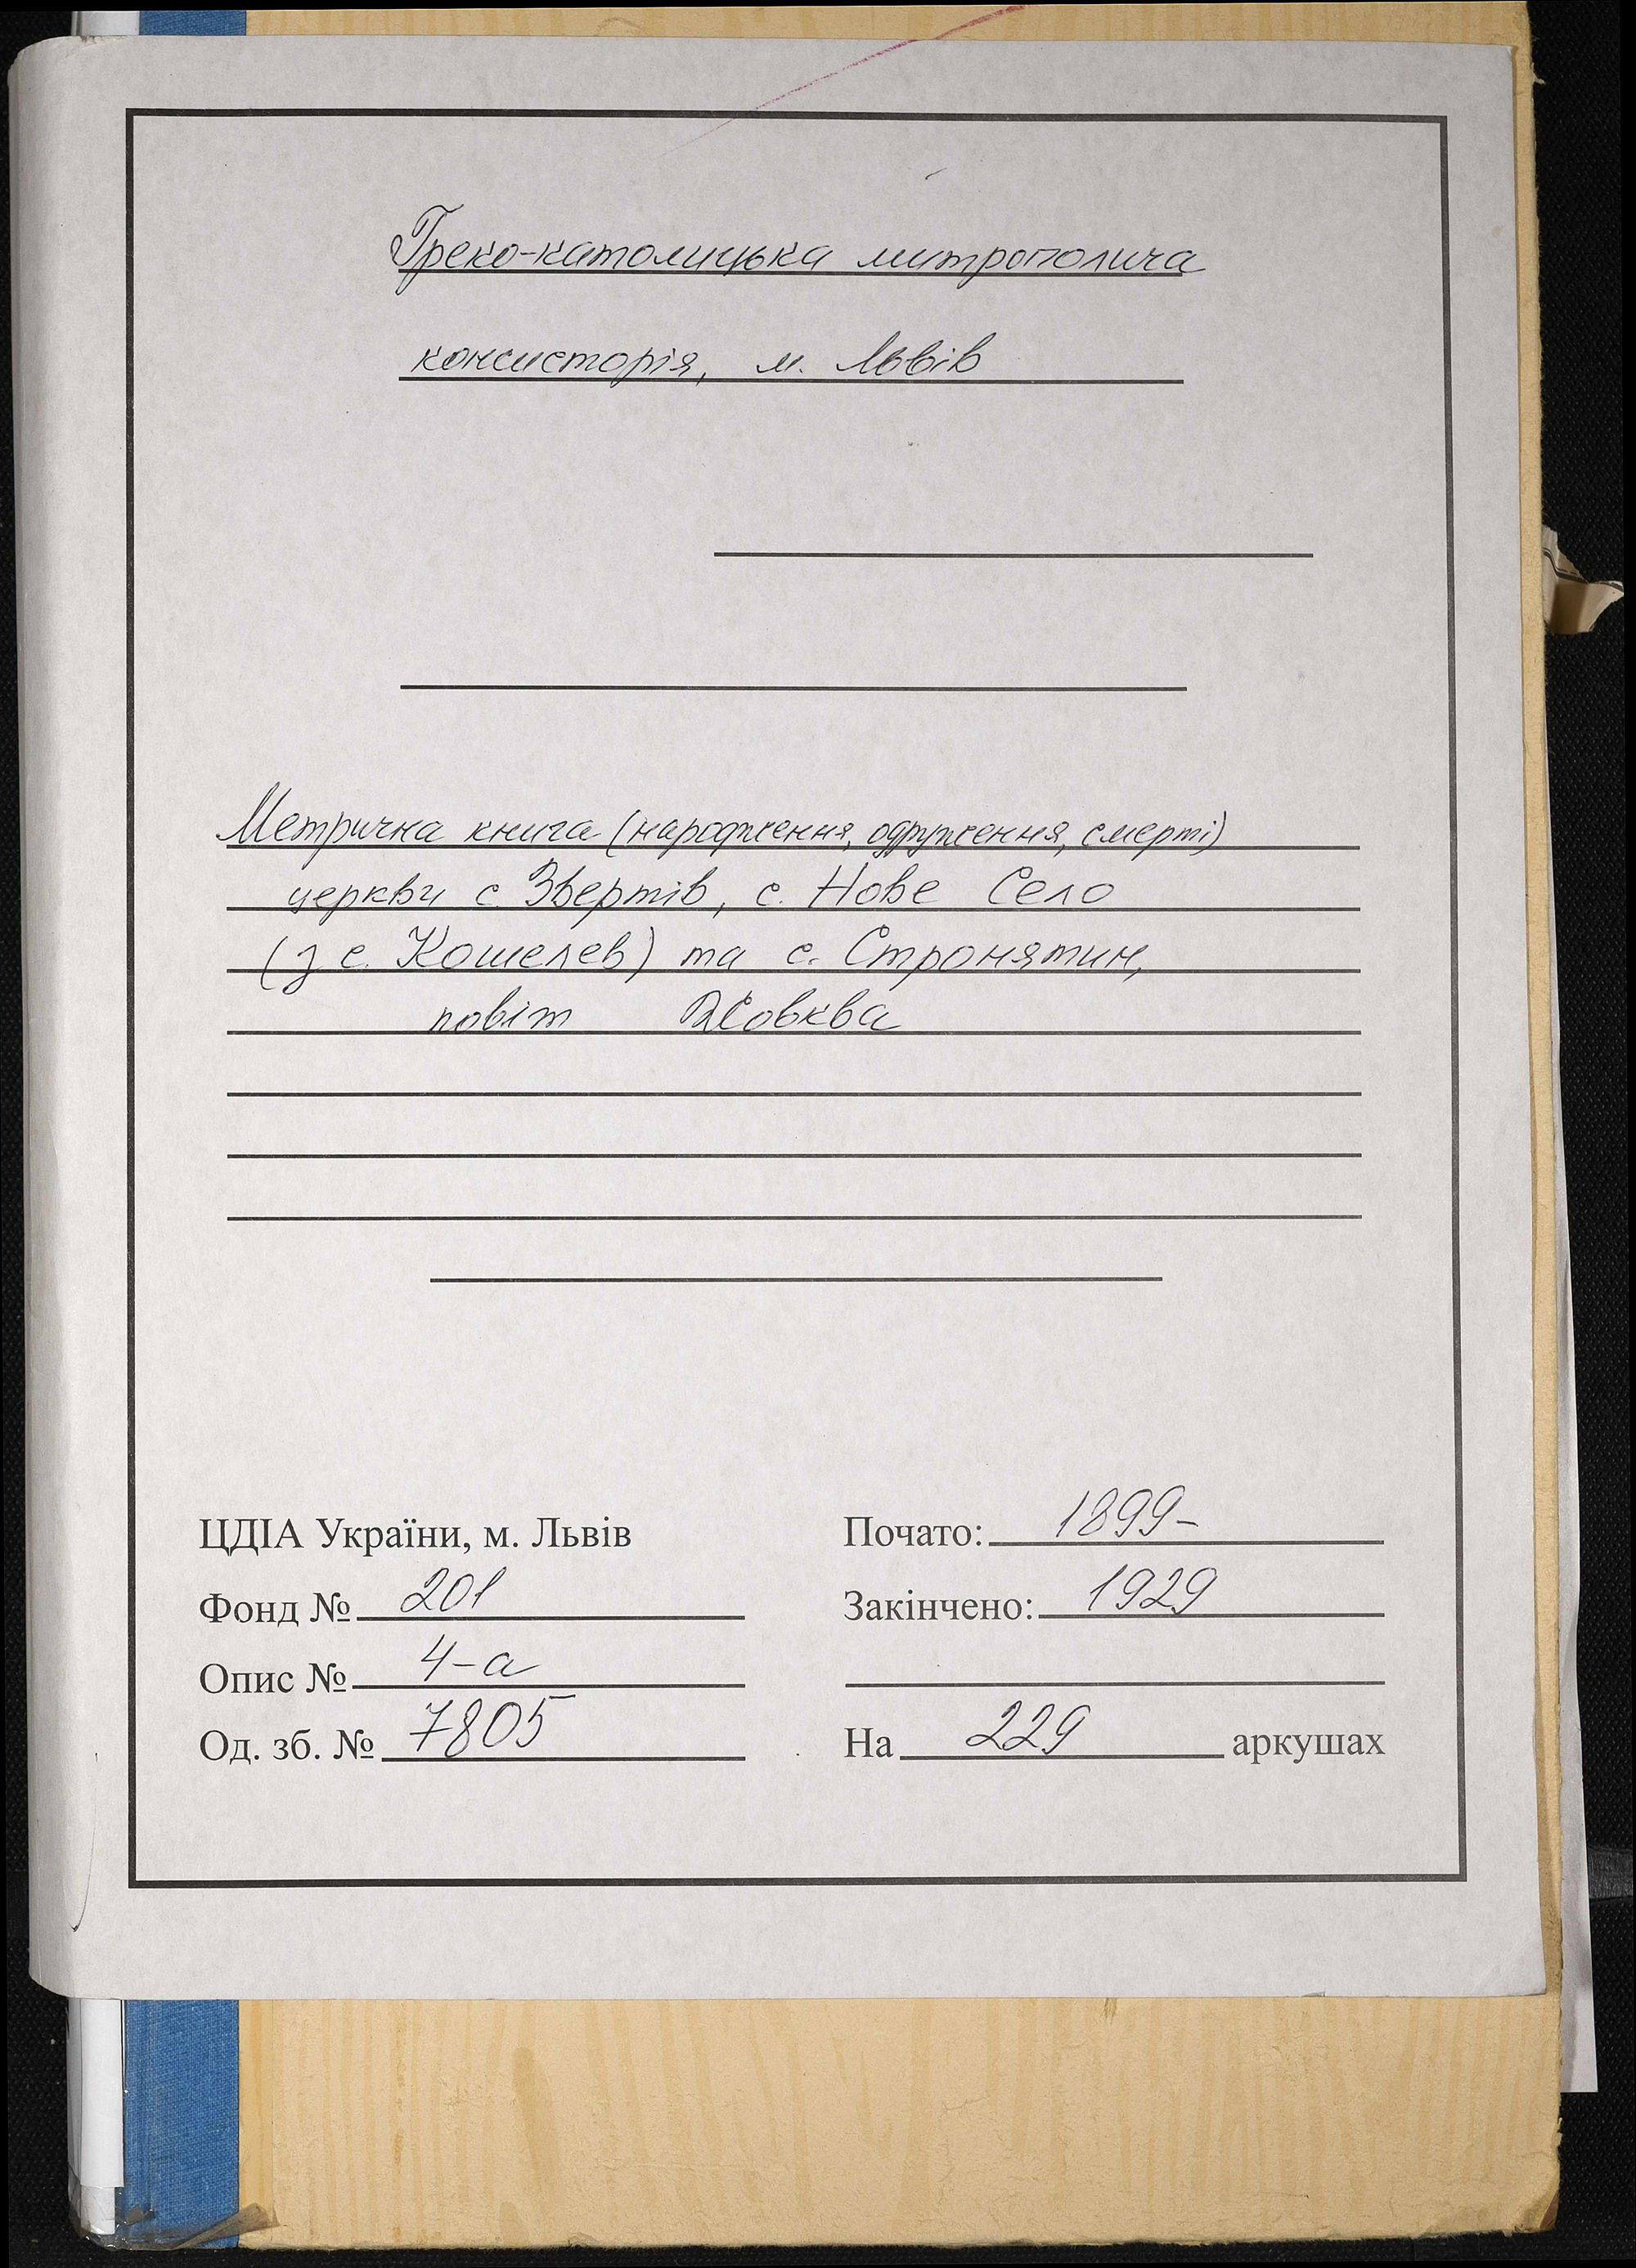 Греко-католицька митрополича
консисторія, м. Львів
Метрична книга (народження, одруження, смерті)
церкви с. Звертів, с. Нове Село
(з с. Кошелев) та с. Стронятин,
повіт Жовква
ЦДІА України, м. Львів
Фонд № 201
Опис № 4-а
Од. зб. № 7805
Почато: 1899-
Закінчено: 1929
На 229 аркушах